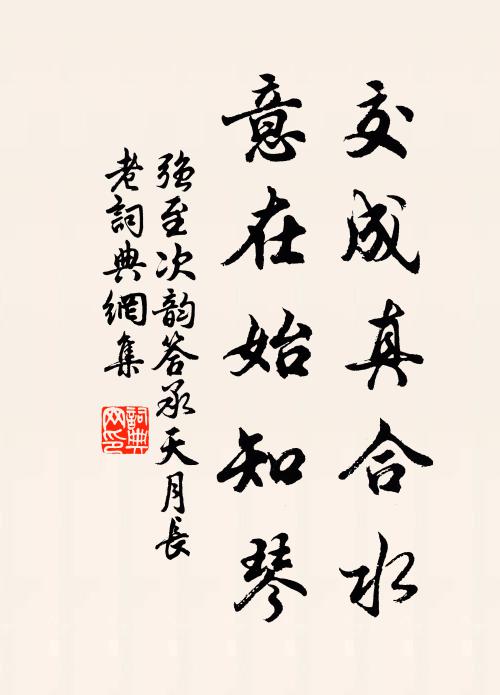 交成真合水
意在始知琴
強至次韵答承天月長
老詞典網集
詞典
网印